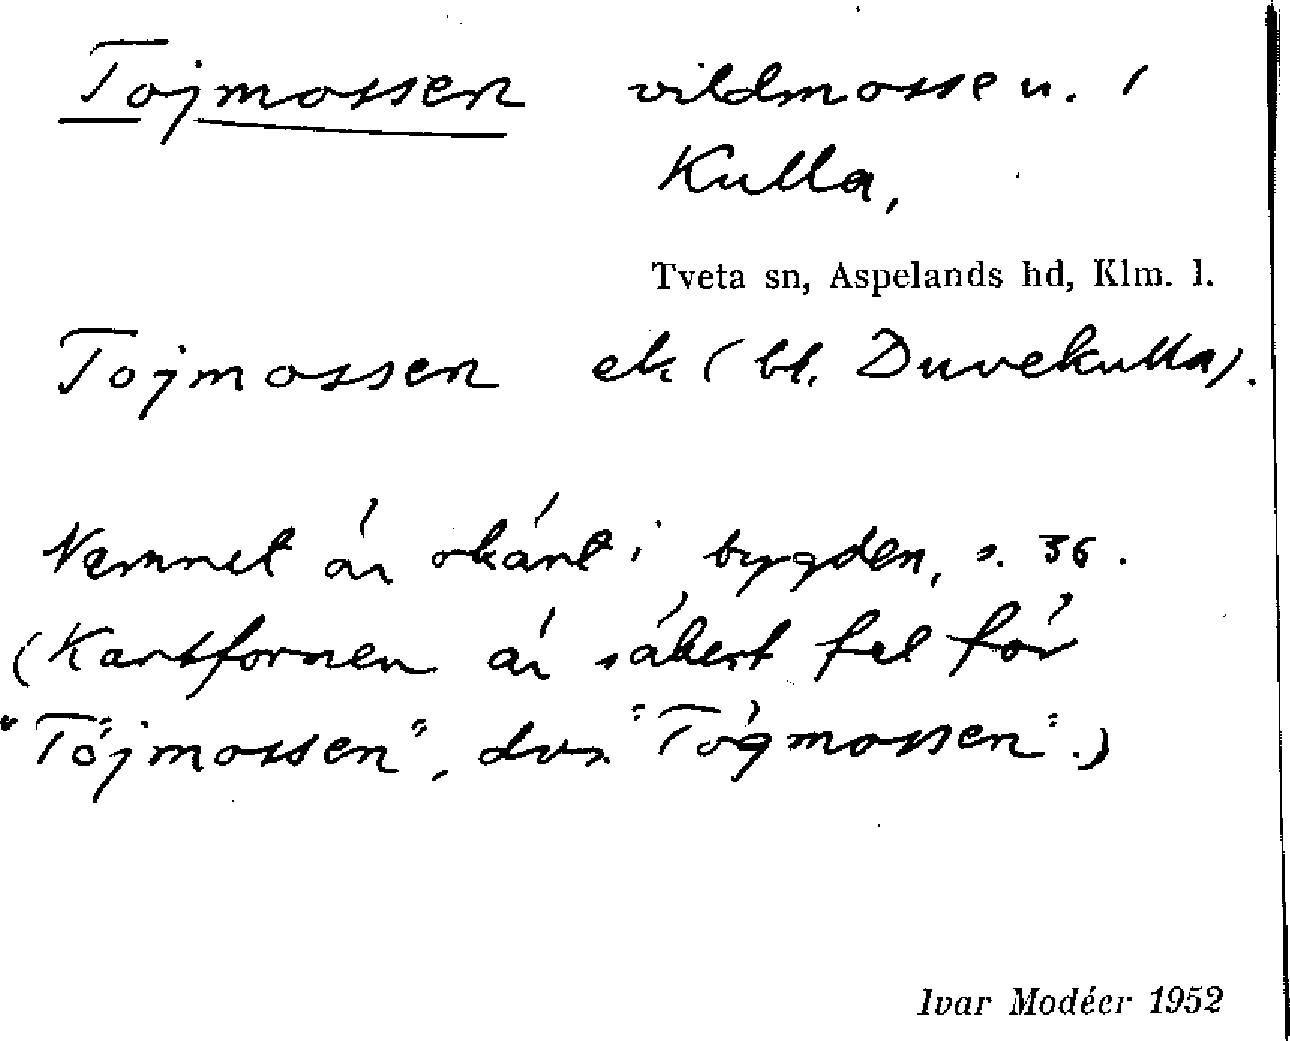 Tojmossen vildmosse u. /
Kulla,
Tveta sn, Aspelands hd, Klm. l.
Tojmossen ek (bl. Duvekulla).
Namnet är okänt i bygden, s. 36.
(Kartformen är säkert fel för
"Töjmossen", dvs. "Tögmossen".)
Ivar Modéer 1952